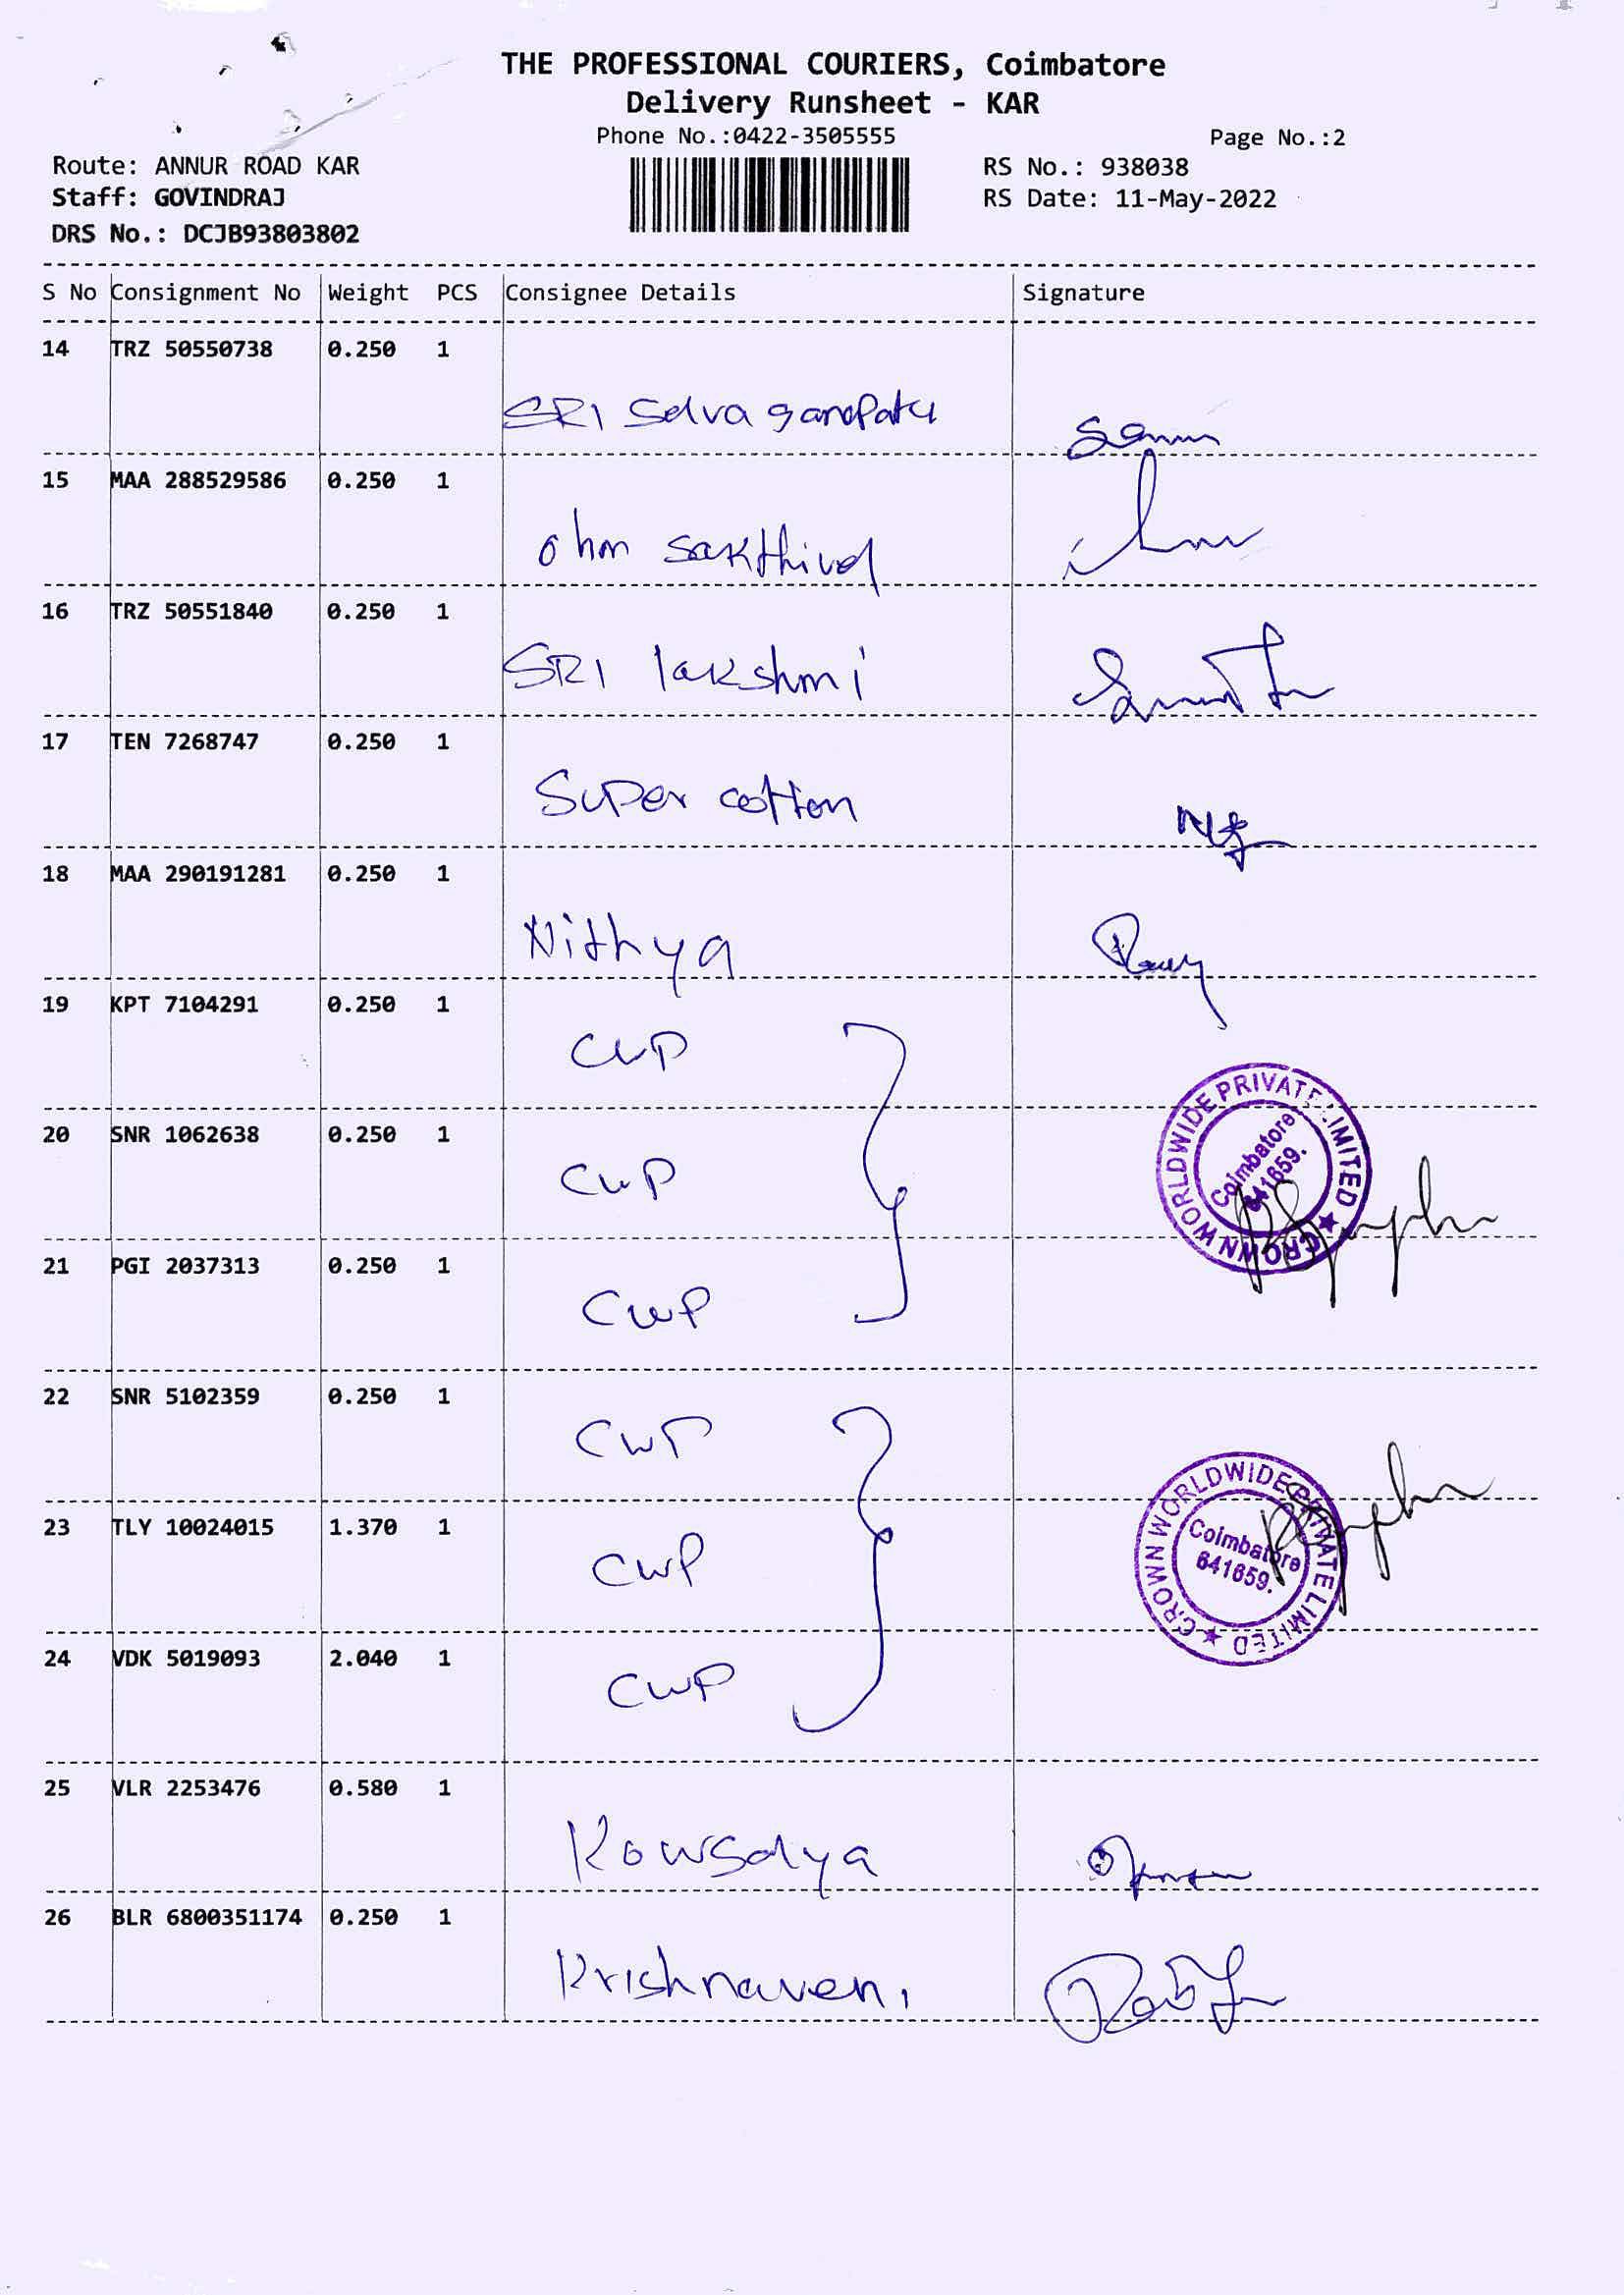 THE PROFESSIONAL COURIERS, Coimbatore
Delivery Runsheet - KAR
Phone No.:0422-3505555 Page No.:2
Route: ANNUR ROAD KAR RS No.: 938038
Staff: GOVINDRAJ RS Date: 11-May-2022
DRS No.: DCJB93803802
S No Consignment No Weight PCS Consignee Details Signature
14 TRZ 50550738 0.250 1
SRI Selvaganapati
15 MAA 288529586 0.250 1
ohm sakthivel
16 TRZ 50551840 0.250 1
SRI lakshmi
17 TEN 7268747 0.250 1
Super cotton
18 MAA 290191281 0.250 1
Nithya
19 KPT 7104291 0.250 1
CWP
CROWN WORLDWIDE PRIVATE LIMITED ★
Coimbatore
641659.
20 SNR 1062638 0.250 1
CWP
21 PGI 2037313 0.250 1
CWP
22 SNR 5102359 0.250 1
CWP
CROWN WORLDWIDE PRIVATE LIMITED ★
Coimbatore
641659.
23 TLY 10024015 1.370 1
CWP
24 VDK 5019093 2.040 1
CWP
25 VLR 2253476 0.580 1
Kowsalya
26 BLR 6800351174 0.250 1
Krishnaveni